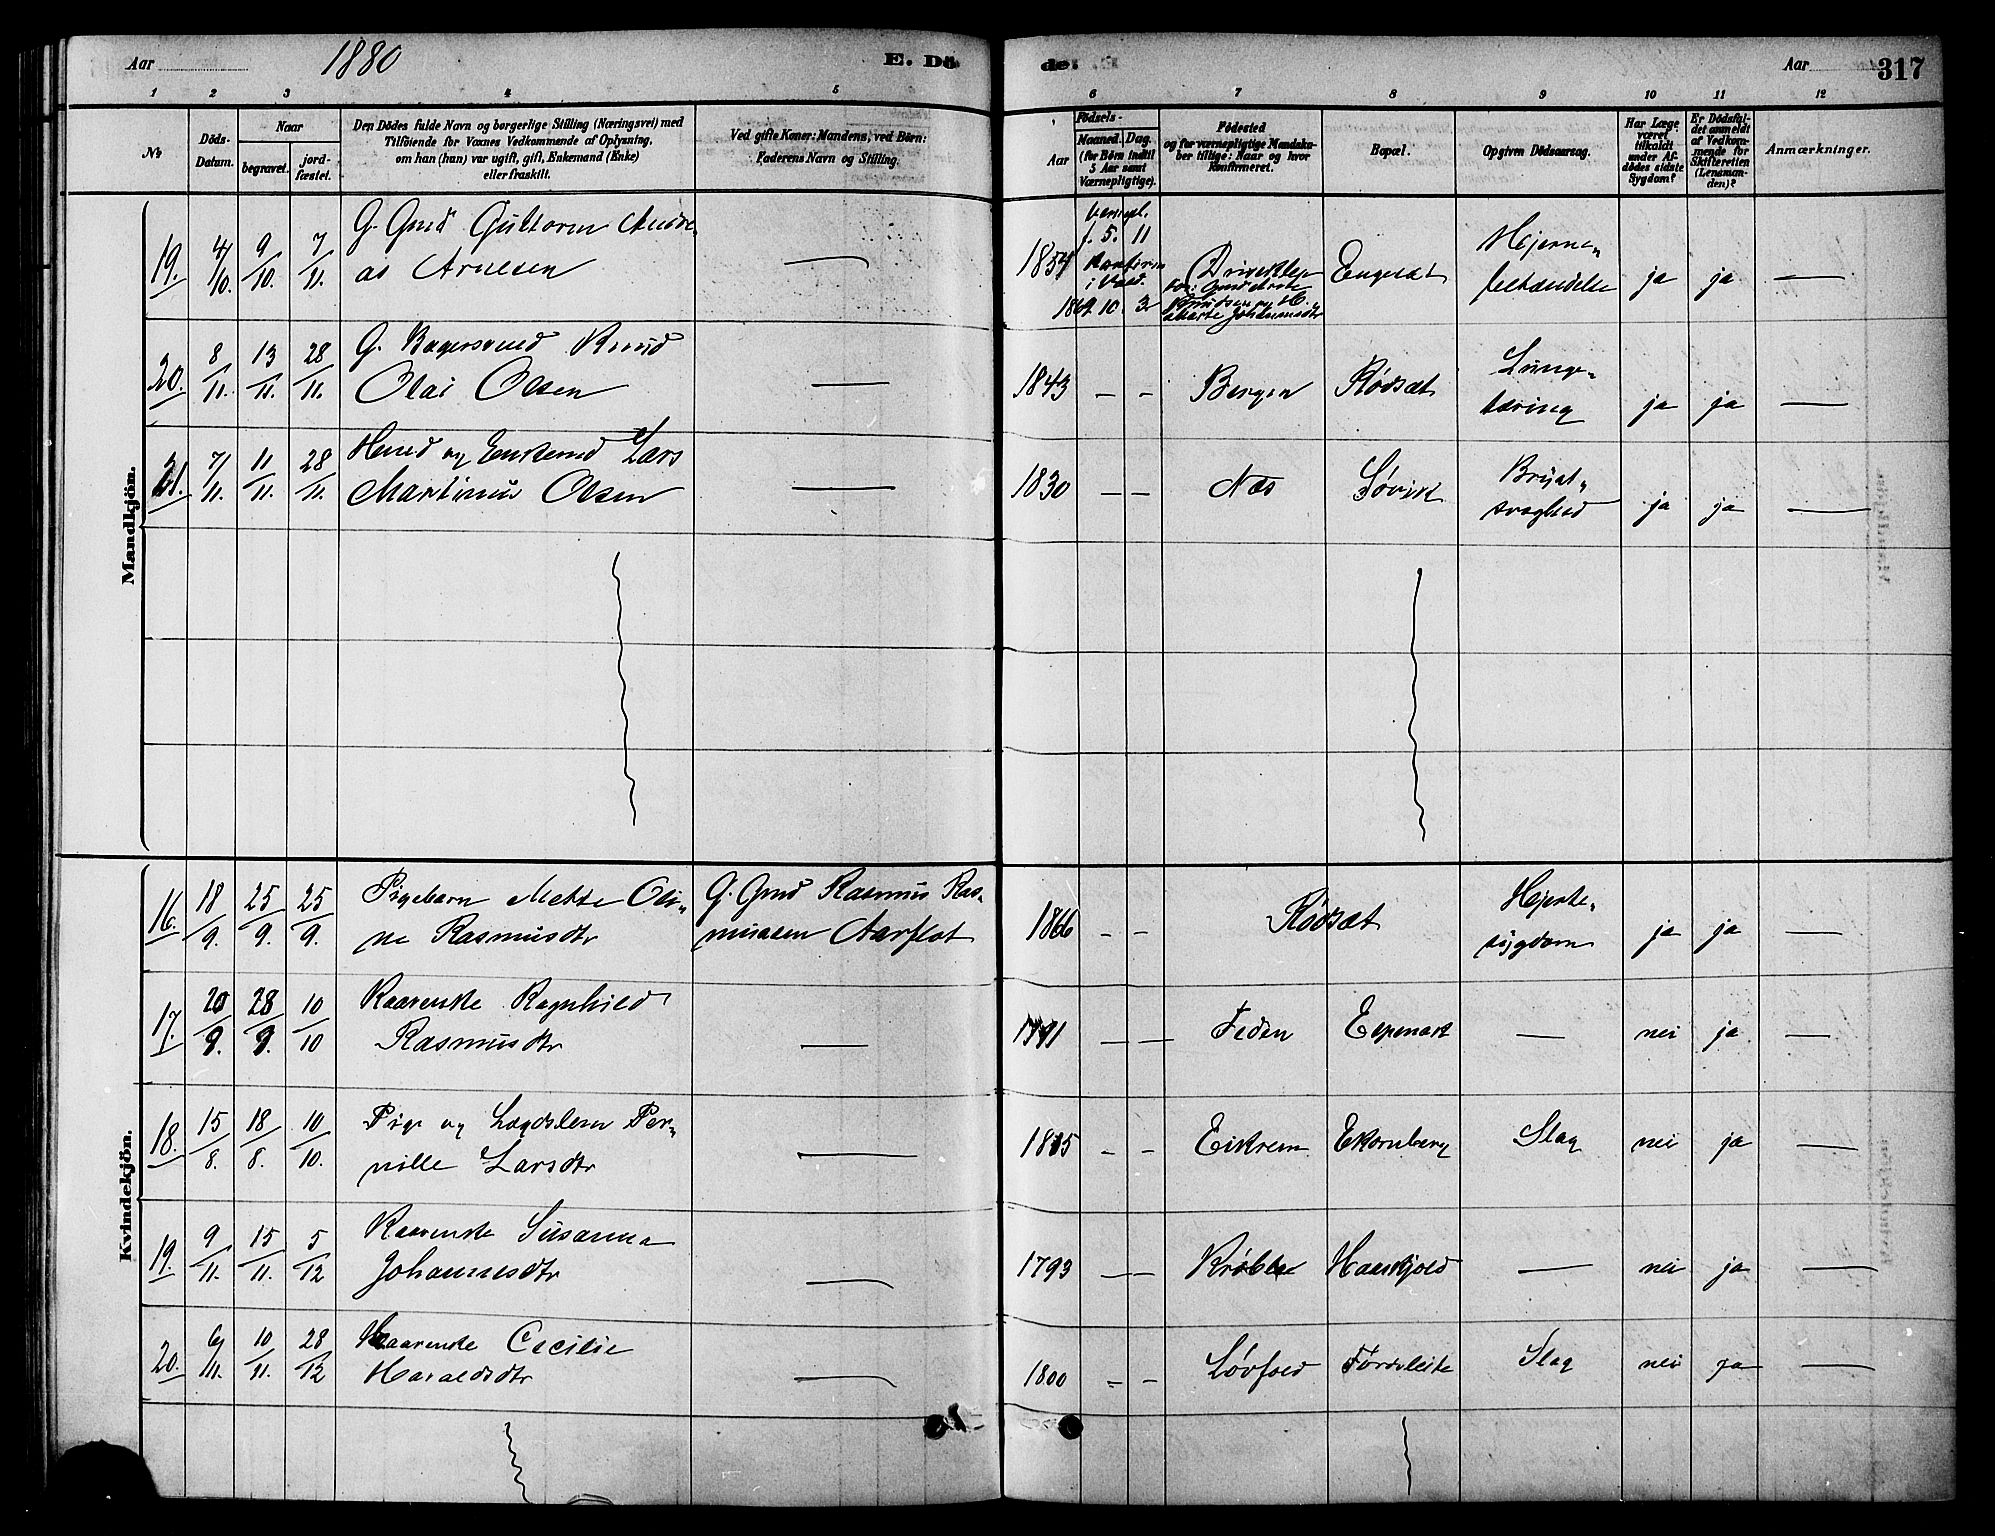 Aar 1880 E. Dö-
de: Aar 317
1 2 3 4 5
6 7 8 9 10 11 12
No
Döds-Datum.
Naar
begravet.
jord-fæstet.
Den Dödes fulde Navn og borgerlige Stilling (Næringsvei) med
Tilföiende for Voxnes Vedkommende af Oplysning,
om han (hun) var ugift, gift, Enkemand (Enke)
eller fraskilt.
Ved gifte Koner: Mandens, ved Börn:
Faderens Navn og Stilling.
Födsels-
Aar
Maaned. Dag.
(for Börn indtil
5 Aar samt
Værnepligtige).
Födested
og for værnepligtige Mandska-
ber tillige: Naar og hvor
Konfirmeret.
Bopæl.
Opgiven Dödsaarsag.
Har Læge
været
tilkaldt
under Af-
dödes sidste
Sygdom?
Er Dödsfal-
det anmeldt
af Vedkom-
mende for
Skifteretten
(Lensman-
den)?
Anmærkninger.
Mandkjön.
19. 4/10. 9/10. 7/11. G. Gmd Guttorm Andre-
as Arnesen — 1854
f. 5. 11
1869 10. 3
Engesæt Hjerne-
betændelse ja ja —
20. 8/11. 13/11. 28/11. G. Bagersvend Knud
Olai Olsen — 1843 — — Bergen Rødsæt Lunge-
tæring ja ja —
21. 7/11. 11/11. 28/11. Huusmd og Enkemd Lars
Martinus Olsen — 1830 — — Næs Søvik Bryst-
svaghed ja ja —
Kvindekjön.
16. 18/9. 25/9. 25/9. Pigebarn Mette Oli-
ne Rasmusdtr G. Gmd Rasmus Ras-
mussen Aarflot 1866 — — Rødsæt Hjerte-
sygdom ja ja —
17. 20/9. 28/9. 10/10 Kaarenke Ragnhild
Rasmusdtr — 1791 — — Feden Espenak — nei ja —
18. 15/8. 18/8. 10/10. Pige og Lægdslem Per-
nille Larsdtr — 1815 — — Eikrem Ekornberg Slag nei ja —
19. 9/11. 15/11. 5/12 Kaarenke Susanna
Johannesdtr — 1793 — — Krøblee Haaskjold — nei ja —
20. 6/11. 10/11. 28/12 Kaarenke Cecilie
Haraldsdtr — 1800 — — Løvfold Førdsleite Slag nei ja —